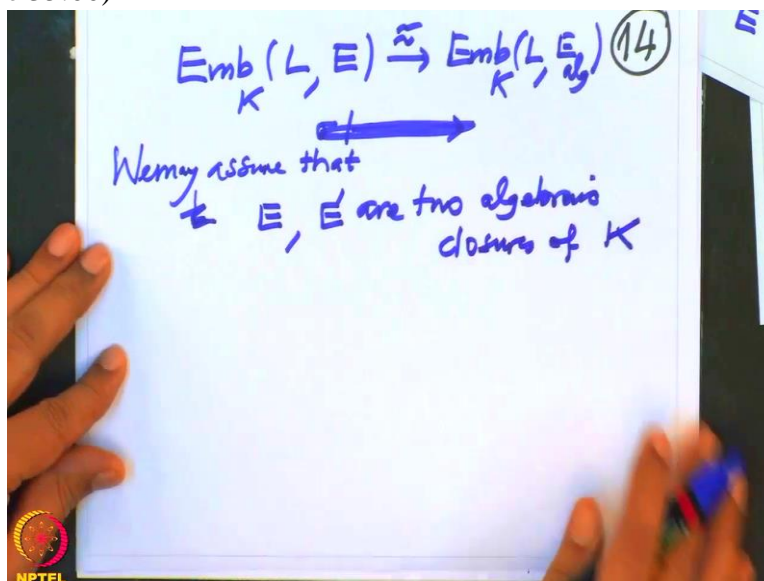 Emb_K (L, E) ⥲ Emb_K (L, E_alg) 14
We may assume that
E, E' are two algebraic
closures of K
E
NPTEL